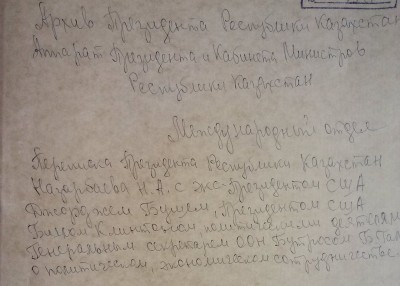 Архив Президента Республики Казахстан
Аппарат Президента и Кабинета Министров
Республики Казахстан
Международный отдел
Переписка Президента Республики Казахстан
Назарбаева Н.А. с экс-Президентом США
Джорджем Бушем, Президентом США
Биллом Клинтоном, политическими деятелями
Генеральным секретарем ООН Бутросом Б.
о политическом, экономическом сотрудничестве